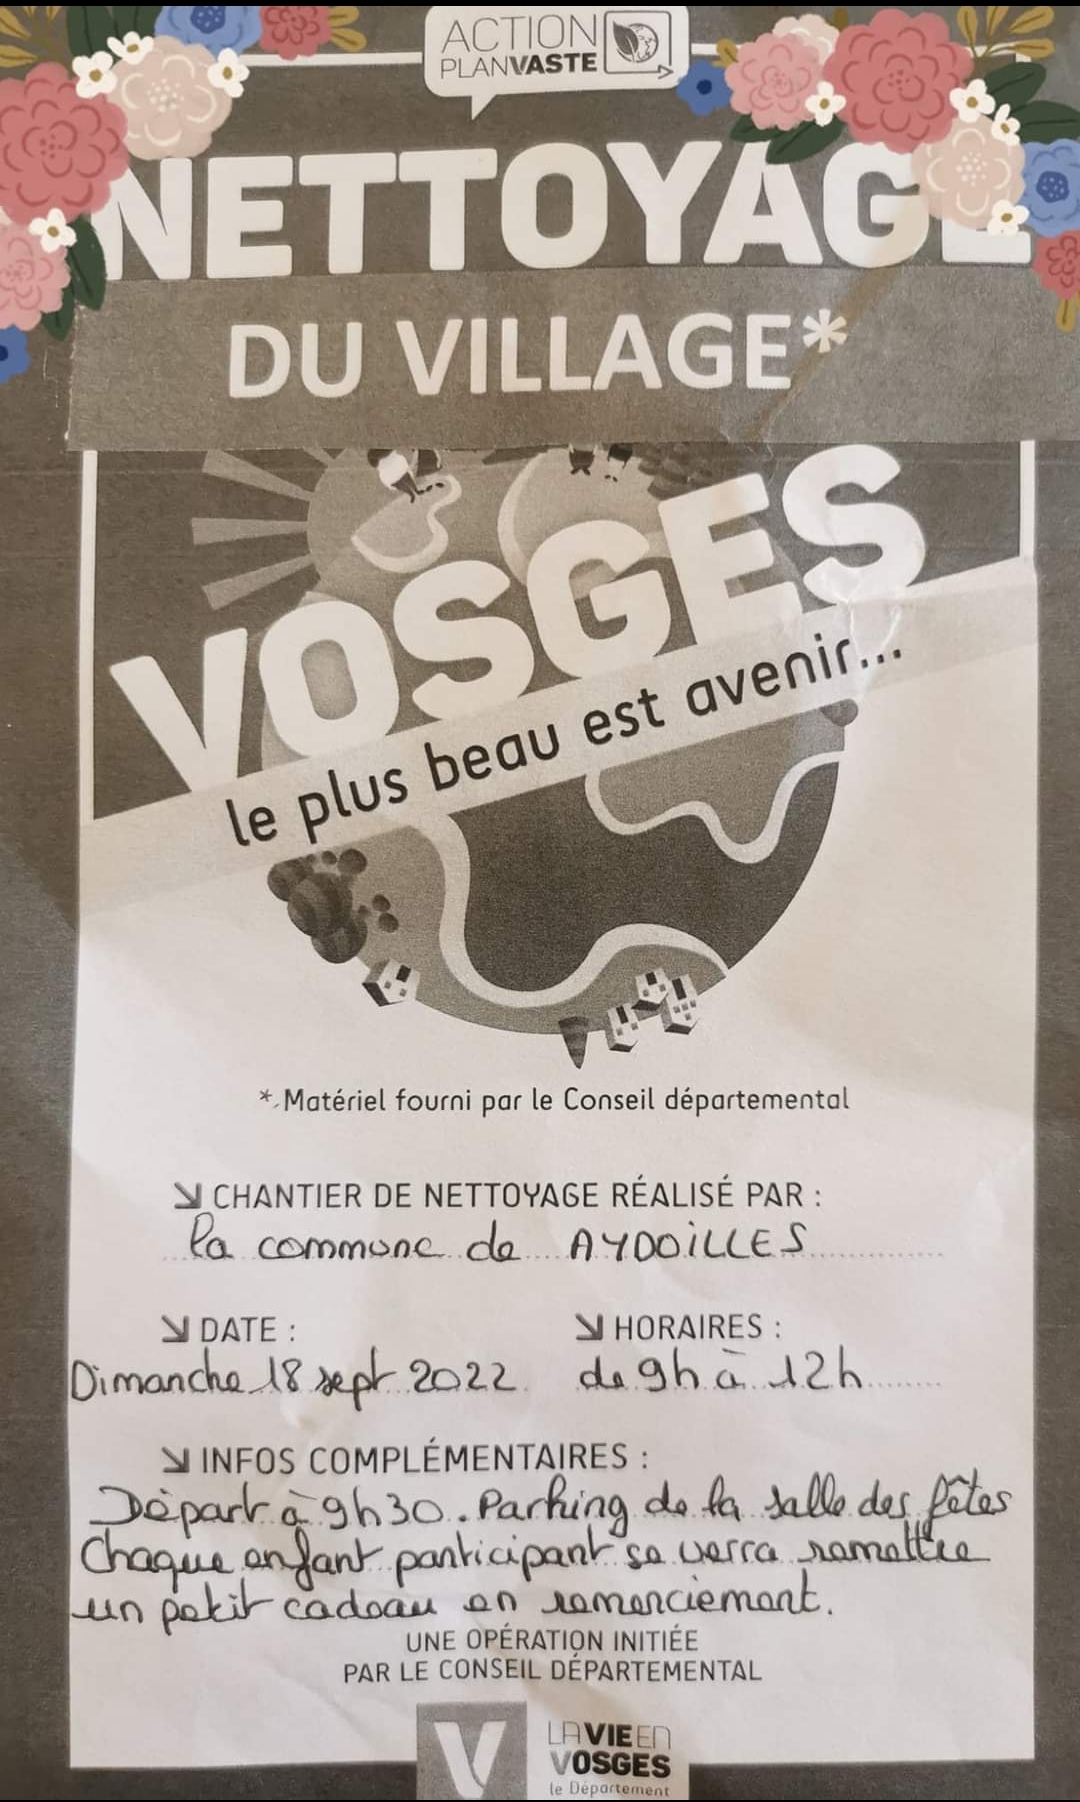 ACTION
PLANVASTE
NETTOYAGE
DU VILLAGE*
VOSGES
le plus beau est avenir...
* Matériel fourni par le Conseil départemental
CHANTIER DE NETTOYAGE RÉALISÉ PAR :
la commune de AYDOILLES
DATE :
HORAIRES :
Dimanche 18 sept 2022
de 9h à 12h
INFOS COMPLÉMENTAIRES :
Départ à 9h30. Parking de la salle des fêtes
Chaque enfant participant se verra remettre
un petit cadeau en remerciement.
UNE OPÉRATION INITIÉE
PAR LE CONSEIL DÉPARTEMENTAL
V
LA VIE EN
VOSGES
le Département